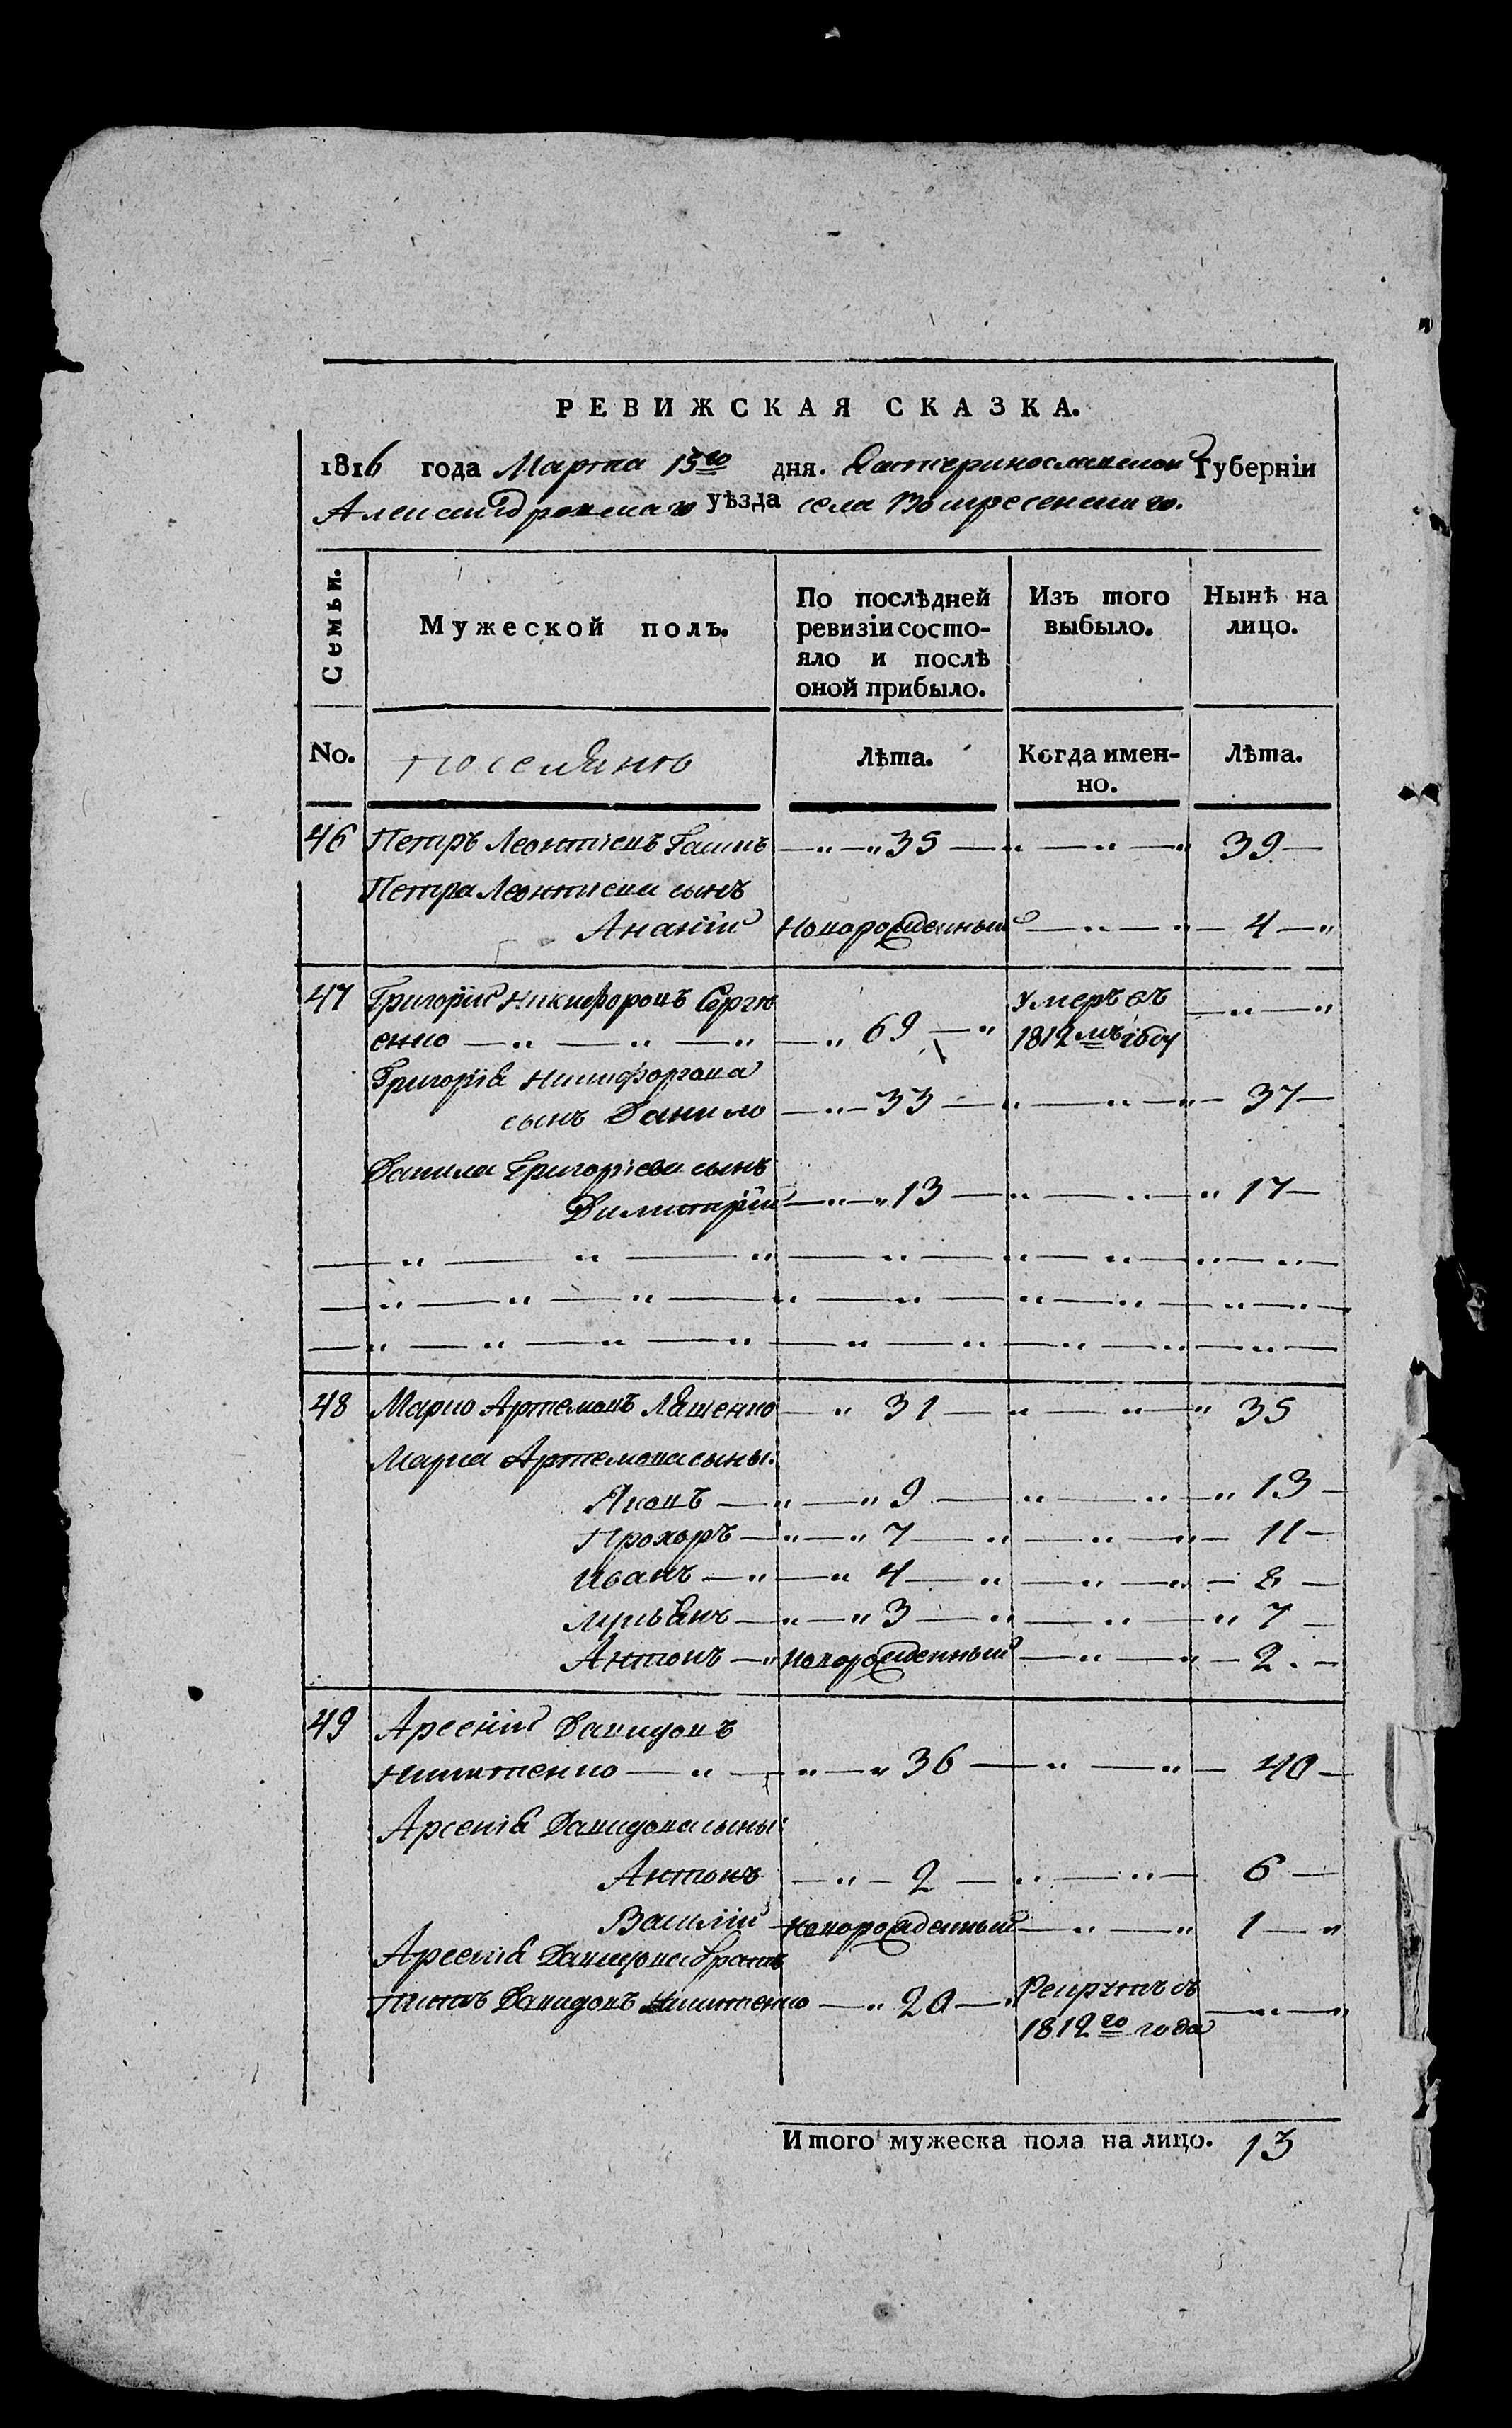 РЕВИЖСКАЯ СКАЗКА.
1816 года Марта 15го дня. Екатеринославской Губерніи
Александровскаго уѣзда села Воскресенскаго.
Семьи.
Мужеской полъ.
По послѣдней
ревизіи состо-
яло и послѣ
оной прибыло.
Изъ того
выбыло.
Нынѣ на
лицо.
No.
Поселянъ
Лѣта.
Когда имен-
но.
Лѣта.
46 Петръ Леонтіевъ 35 39
Петра Леонтиева сынъ
Ананій Новорожденный 4
47 Григорій Никифоровъ Сергѣ
енко 69 Умеръ въ 1812мъ году
Григорія Никифорова
сынъ Данило 33 37
Данила Григоріева сынъ
Димитрій 13 17
48 Марко Артемовъ Ляшенко 31 35
Марка Артемова сыны:
Яковъ 9 13
Прохоръ 7 11
Иванъ 4 8
Лукьянъ 3 7
Антонъ Новорожденный 2
49 Арсеній Давидовъ
Никитенко 36 40
Арсенія Давидова сыны:
Антонъ 2 6
Василій Новорожденный 1
Арсенія Давидова братъ
Титъ Давидовъ Никитенко 20 Рекрутъ съ
1812го года
Итого мужеска пола на лицо. 13